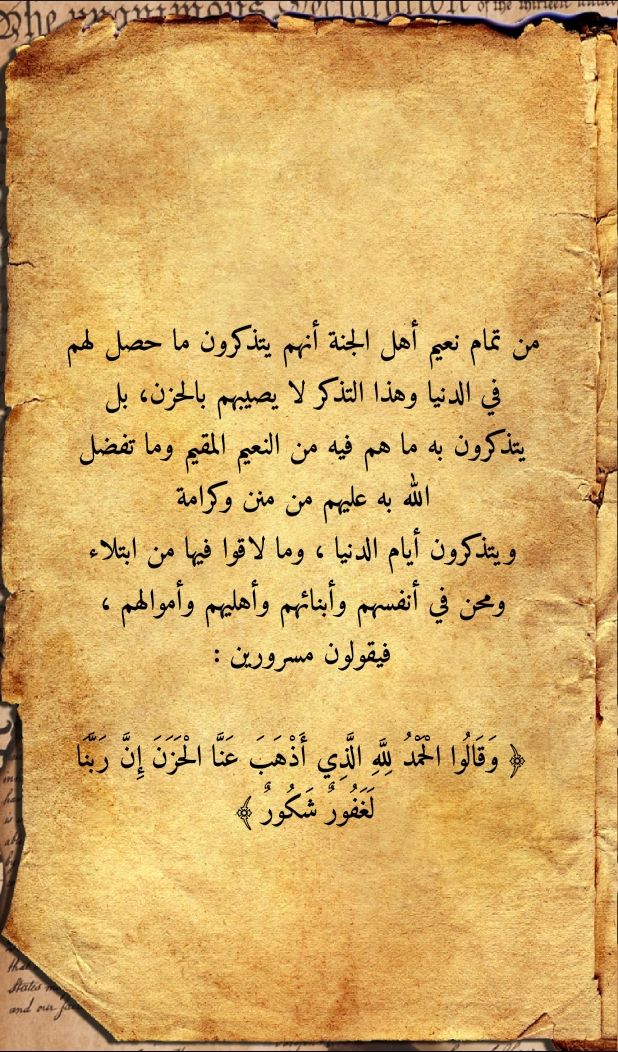 The unanimous Declaration of the thirteen united
من تمام نعيم أهل الجنة أنهم يتذكرون ما حصل لهم
في الدنيا وهذا التذكر لا يصيبهم بالحزن، بل
يتذكرون به ما هم فيه من النعيم المقيم وما تفضل
الله به عليهم من منن وكرامة
ويتذكرون أيام الدنيا ، وما لاقوا فيها من ابتلاء
ومحن في أنفسهم وأبنائهم وأهليهم وأموالهم ،
فيقولون مسرورين :
﴿ وَقَالُوا الْحَمْدُ لِلَّهِ الَّذِي أَذْهَبَ عَنَّا الْحَزَنَ إِنَّ رَبَّنَا
لَغَفُورٌ شَكُورٌ ﴾
that
States
and our